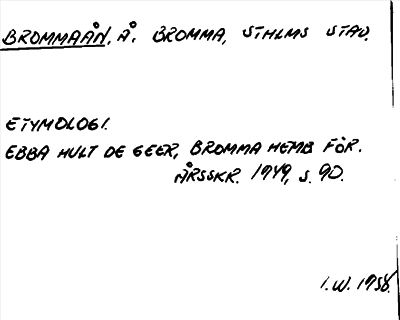 BROMMAÅN, Å. BROMMA, STHLMS STAD.
ETYMOLOGI.
EBBA HULT DE GEER, BROMMA HEMB FÖR.
ÅRSSKR. 1949, S. 90.
I.W. 1958.